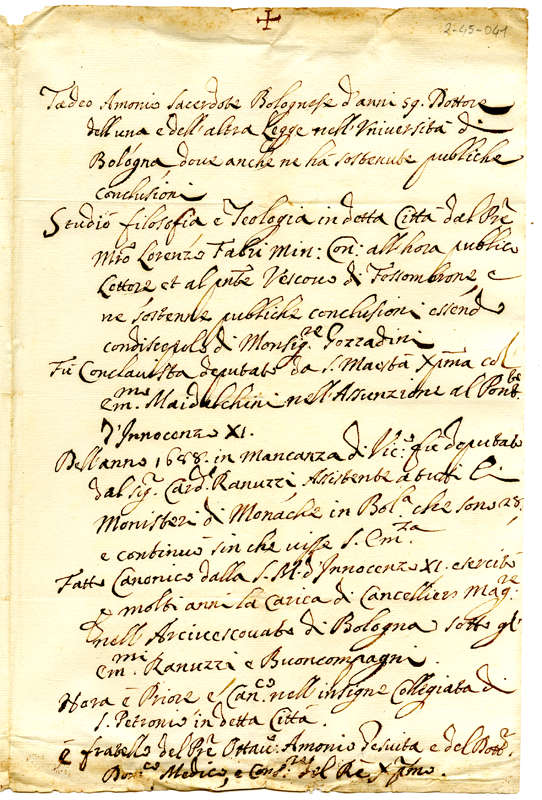 2-45-041
Tadeo Amonio Sacerdote Bolognese d'anni 59. Dottore
dell'una e dell'altra Legge nell'Università di
Bologna, dove anche ne hà sostenute publiche
conclusioni
Studiò filosofia e Teologia in detta Città dal Pre
Mro Lorenzo Fabri Min: Con: all'hora publico
Lettore et al pnte Vescovo di Fossombrone, e
ne sostenne publiche conclusioni essend
condiscepolo di Monsigre Gozzadini
Fù Conclavista deputato da S. Maestà Xpma col
Emmo Maidalchini nell'Assunzione al Pontte
d'Innocenzo XI.
Dell'anno 1688. in mancanza di Vico fù deputato
dal Sigr Cardl Ranuzzi Assistente a tutti li
Monisteri di Monache in Bola che sono 28.
e continuò sin che visse S. Emza
Fatto Canonico dalla S. M. d'Innocenzo XI. esercitò
molti anni la Carica di Cancelliero Magre
nell'Arcivescovato di Bologna sotto gl'
Emmi Ranuzzi e Buoncompagni.
Hora è Priore e Canco nell'insigne Collegiata di
S. Petronio in detta Città.
È fratello del Pre Ottavo Amonio Gesuita e del Dotte
Domco Medico, e Consre del Rè Xpmo.